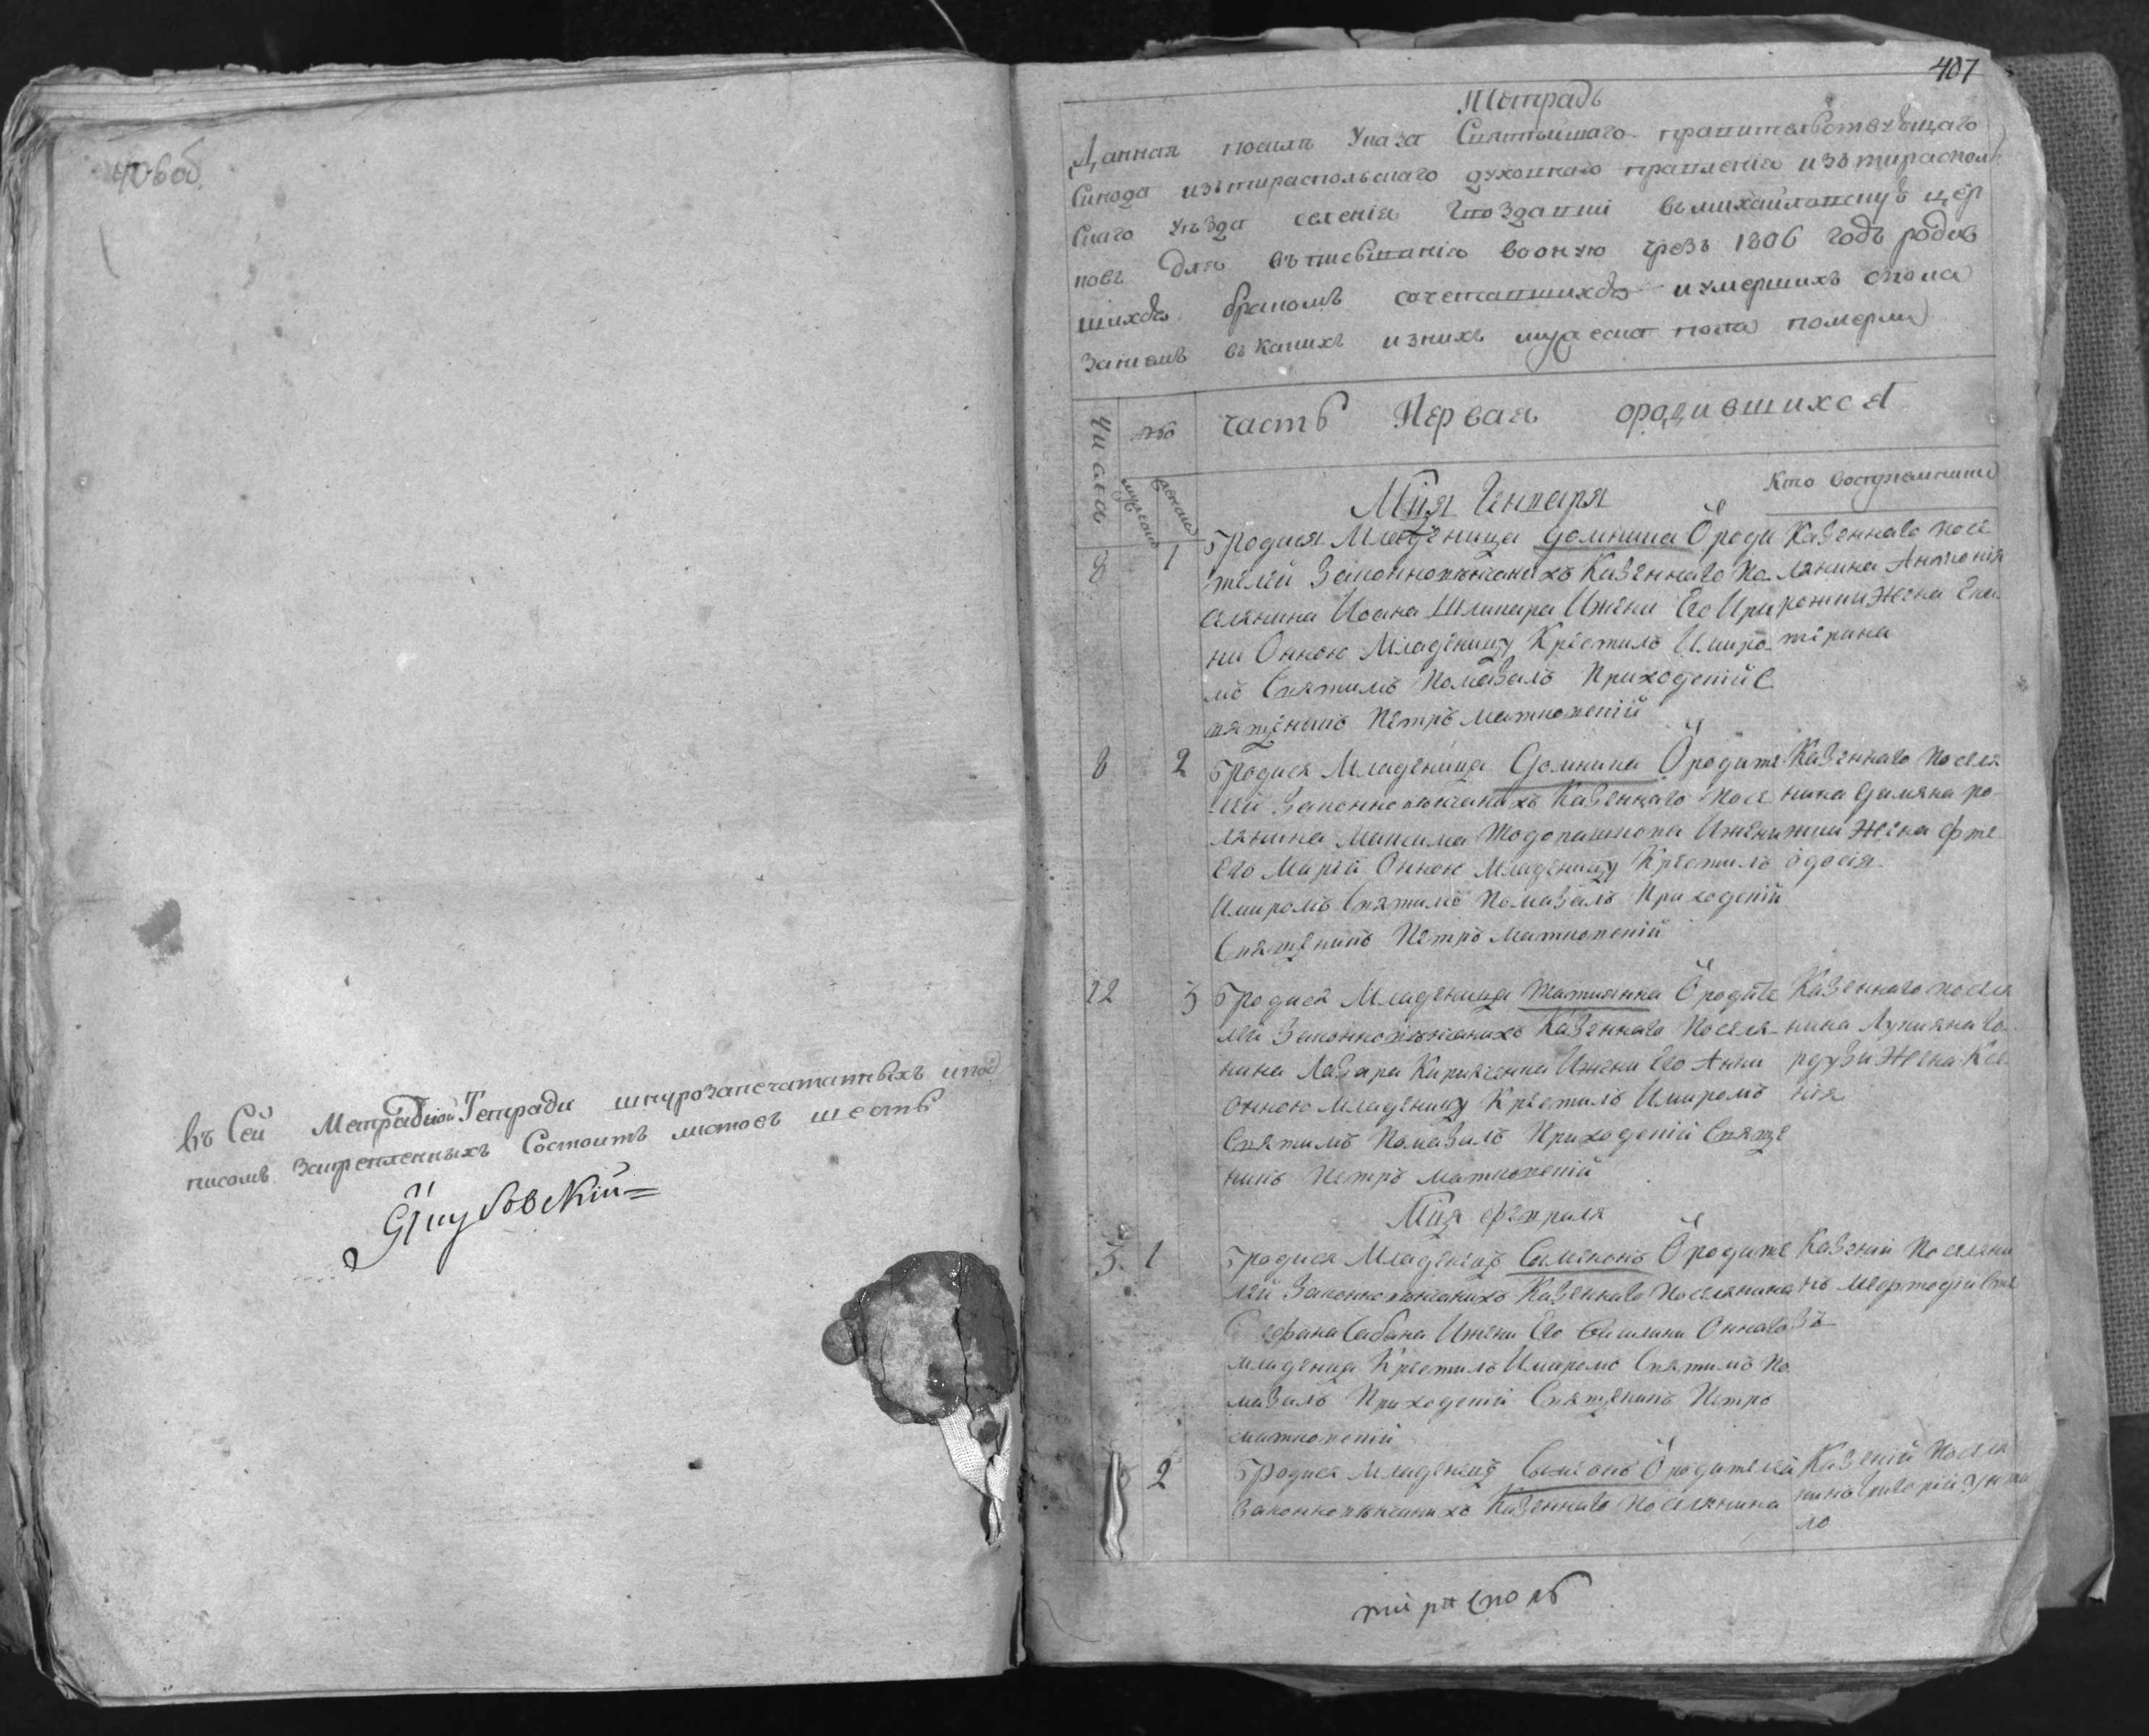 406об.
въ Сей Метрической Тетради шнурозапечатанныхъ ипод
писомъ Закрепленныхъ Состоитъ листовъ шесть
407
Тетрадь
Данная посилѣ Указа Святѣйшаго правителствующаго
Синода изътираспольскаго духовнаго правленія изътирасполь
скаго уѣзда селенія Гвоздавки въмихайловскую цер
ковь для въписыванія вооную чрезъ 1806 годъ родив
шихся бракомъ сочетавшихся иумершихъ спока
заніемъ въ какихъ изнихъ
Числа
часть Первая ородившихся
мужеска
женска
Мца Генваря
Кто воспріемники
8 1 Родися Младеница Домникиа Ѿ роди
телей Законновѣнчаныхъ Казеннаго По
селянина Иоана Шликаря Ижени Его Ири
ни Онною Младеницу Крестилъ Имиро
мъ Святимъ Помазалъ Приходскій С
вященикъ Петръ Матковскій
Казеннаго посе
лянина Антонія
жена Ека
терина
8 2 Родися Младеница Домникиа Ѿ родите
лей Законновѣнчаныхъ Казеннаго Посе
лянина Максима Ижени
Его Маріи Онною Младеницу Крестилъ
Имиромъ Святимъ Помазалъ Приходскій
Священикъ Петръ Матковскій
Казеннаго Поселя
нина Дамяна
жена Фте
одосія
22 3 Родися Младеница Татиянна Ѿ родите
лей Законновѣнчаныхъ Казеннаго Поселя
нина Лазара Кириченка Ижени Его Анни
Онною Младеницу Крестилъ Имиромъ
Святимъ Помазалъ Приходскій Свяще
никъ Петръ Матковскій
Казеннаго поселя
нина Лукияна Го
рдузи Жена Ксе
нія
Мца Февраля
3 1 Родися Младенецъ Симеионъ Ѿ родите
лей Законновѣнчаныхъ Казеннаго Поселянина
Стефана Сабана Ижени Его Оннаго
младенца Крестилъ Имиромъ Святимъ По
мазалъ Приходскій Священикъ Петръ
Матковскій
Казений Поселяни
нъ
2 Родися Младенецъ Симеонъ Ѿ родителей
Законновѣнчаныхъ Казеннаго Поселянина
Казеній Поселя
нинъ
ло
тирасполь